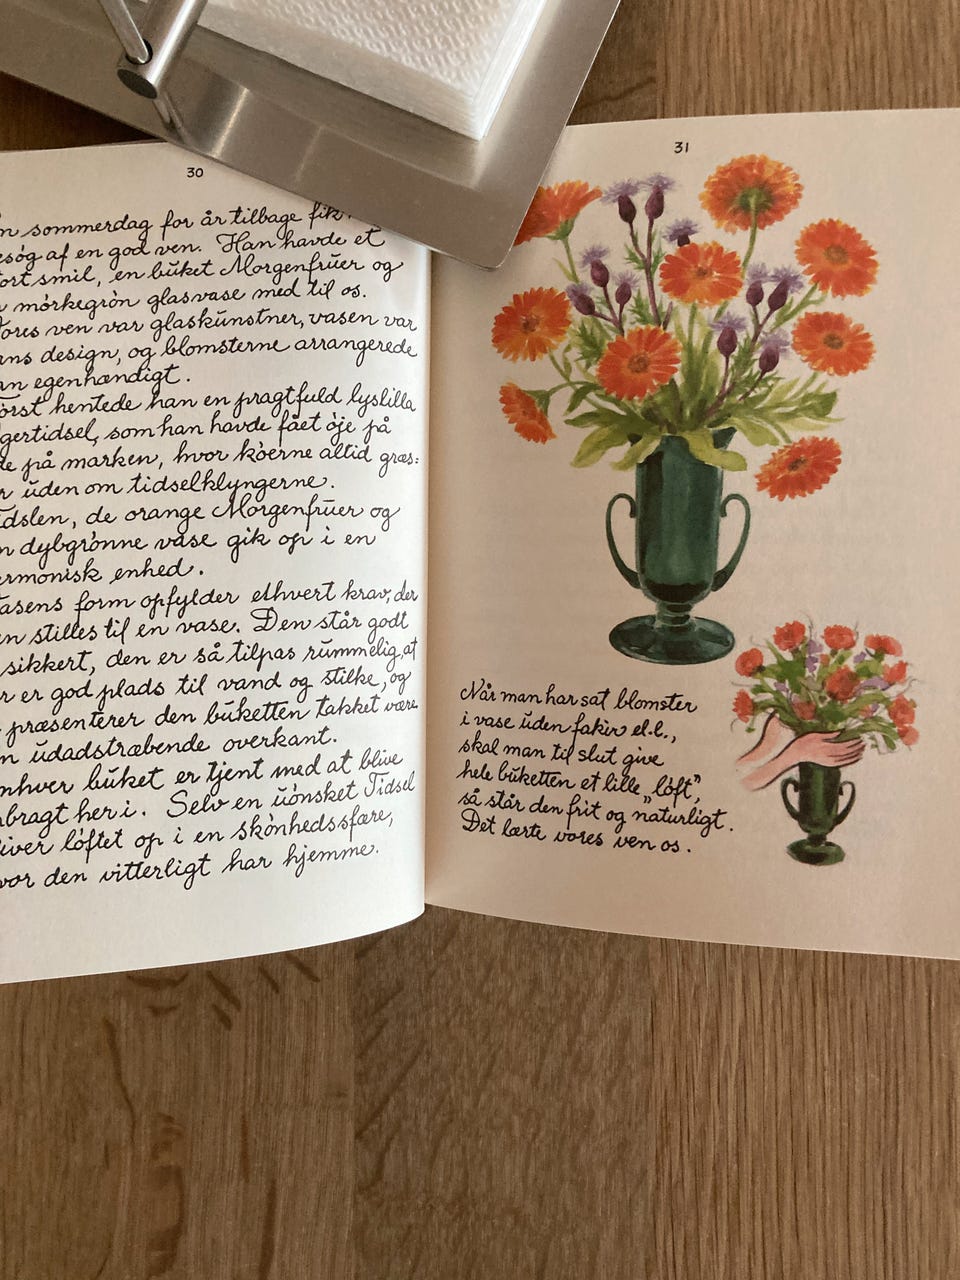 30
n sommerdag for år tilbage fik
esøg af en god ven. Han havde et
tort smil, en buket Morgenfruer og
n mörkegrön glasvase med til os.
Vores ven var glaskunstner, vasen var
ans design, og blomsterne arrangerede
an egenhændigt.
Först hentede han en pragtfuld lyslilla
gertidsel, som han havde fået öje på
de på marken, hvor köerne altid græs:
r uden om tidselklyngerne.
idslen, de orange Morgenfruer og
n dybgrönne vase gik op i en
ermonisk enhed.
asens form opfylder ethvert krav, der
n stilles til en vase. Den står godt
sikkert, den er så tilpas rummelig, at
r er god plads til vand og stilke, og
præsenterer den buketten takket være
n udadstræbende overkant.
nhver buket er tjent med at blive
nbragt heri. Selv en uönsket Tidsel
liver löftet op i en skönhedssfære,
vor den vitterligt har hjemme.
31
Når man har sat blomster
i vase uden fakir el.l.,
skal man til slut give
hele buketten et lille „löft",
så står den frit og naturligt.
Det lærte vores ven os.